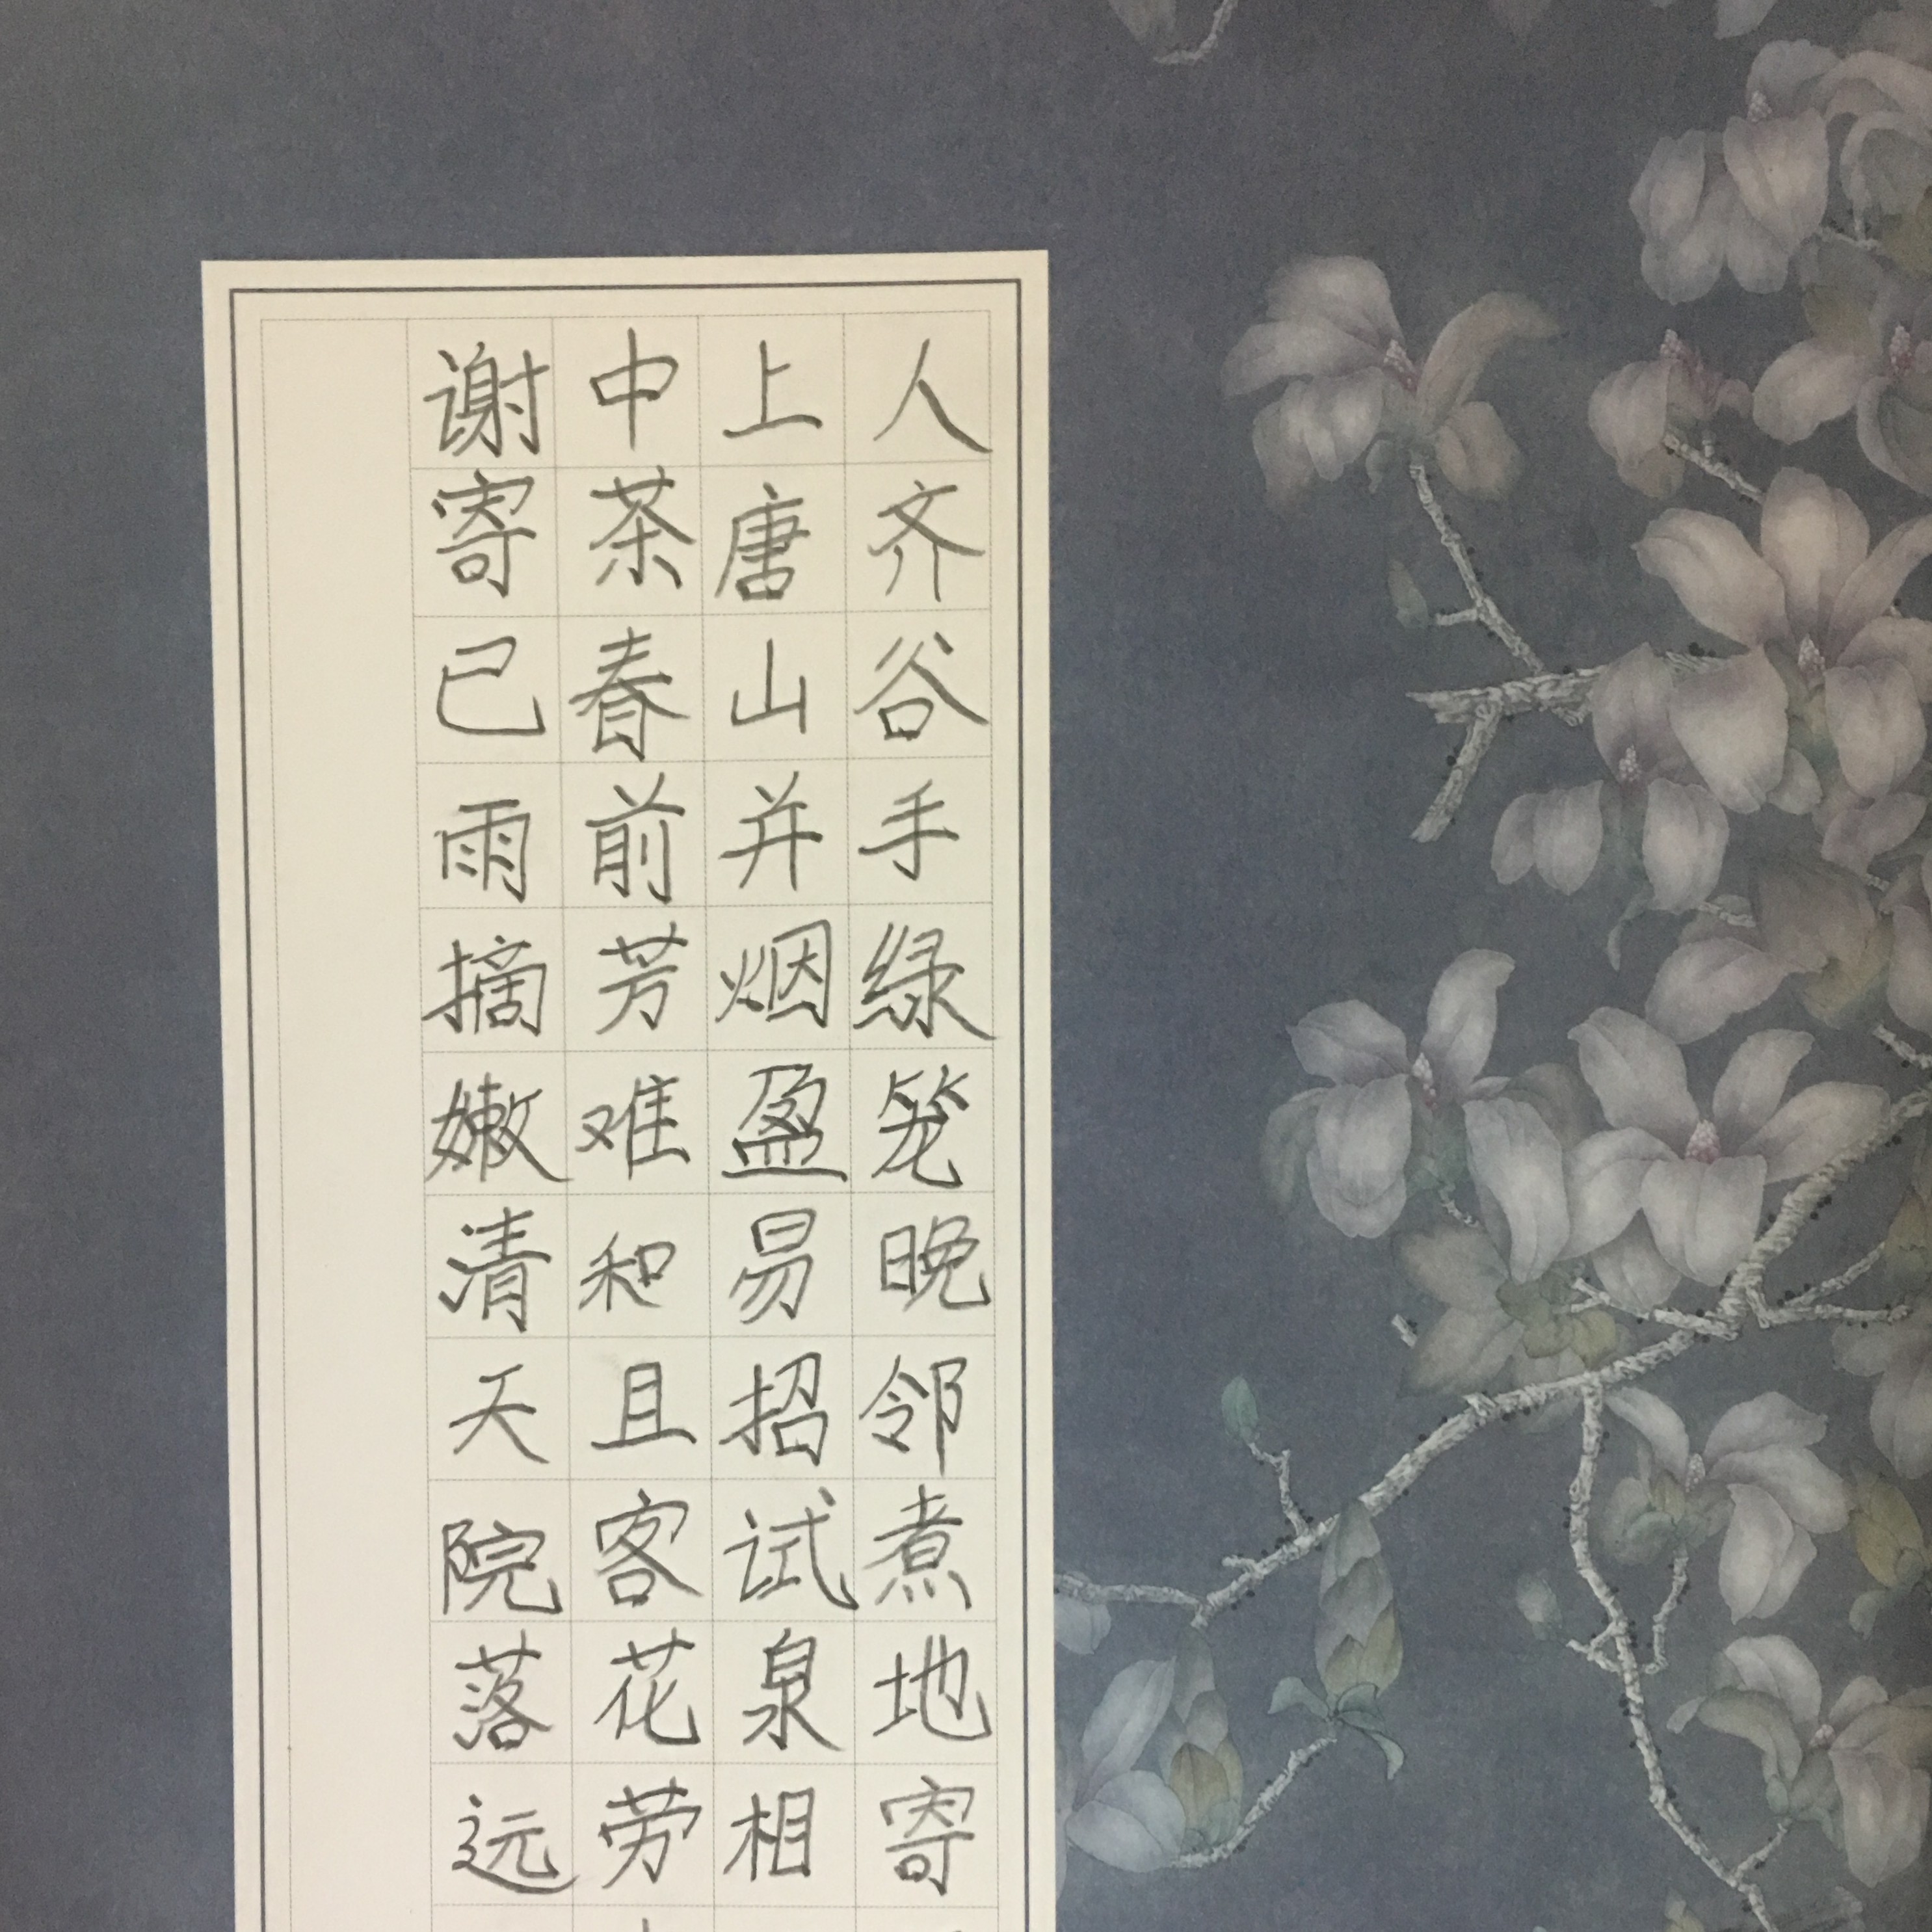 人齐谷手绿笼晚邻煮地寄
上唐山并烟盈易招试泉相
中茶春前芳难和且客花劳
谢寄已雨摘嫩清天院落远